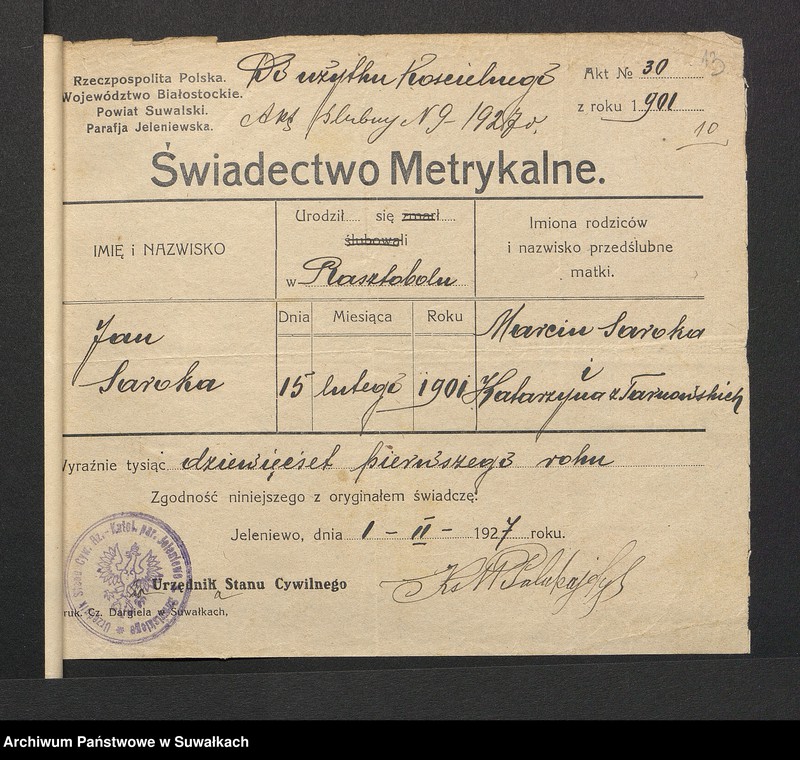 Rzeczpospolita Polska.
Województwo Białostockie.
Powiat Suwalski.
Parafja Jeleniewska.
Do użytku Kościelnego
Akt Ślubny N 9 - 1927 o.
Akt № 30
z roku 1901
13
10
Świadectwo Metrykalne.
IMIĘ i NAZWISKO
Urodził się zmarł
ślubowali
w Rasztobolu
Imiona rodziców
i nazwisko przedślubne
matki.
Dnia Miesiąca Roku
Jan
Saroka
15 lutego 1901
Marcin Saroka
i
Katarzyna z Tarnowskich
Wyraźnie tysiąc dziewięćset pierwszego roku
Zgodność niniejszego z oryginałem świadczę:
Jeleniewo, dnia 1 - II - 1927 roku.
Urzędnik Stanu Cywilnego
Ks W
Druk. Cz. Dargiela w Suwałkach,
Urzędnik Stanu Cyw. Rz.-Katol. par. Jeleniewo
Archiwum Państwowe w Suwałkach